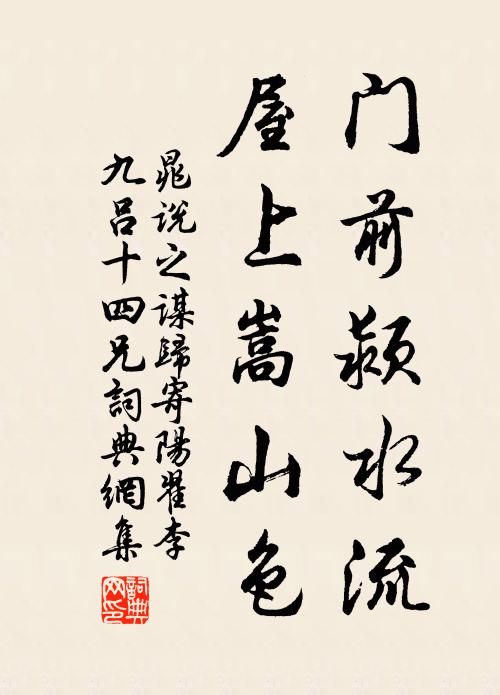 门前颍水流
屋上嵩山色
晁说之谋歸寄陽翟李
九吕十四兄詞典網集
詞典网印